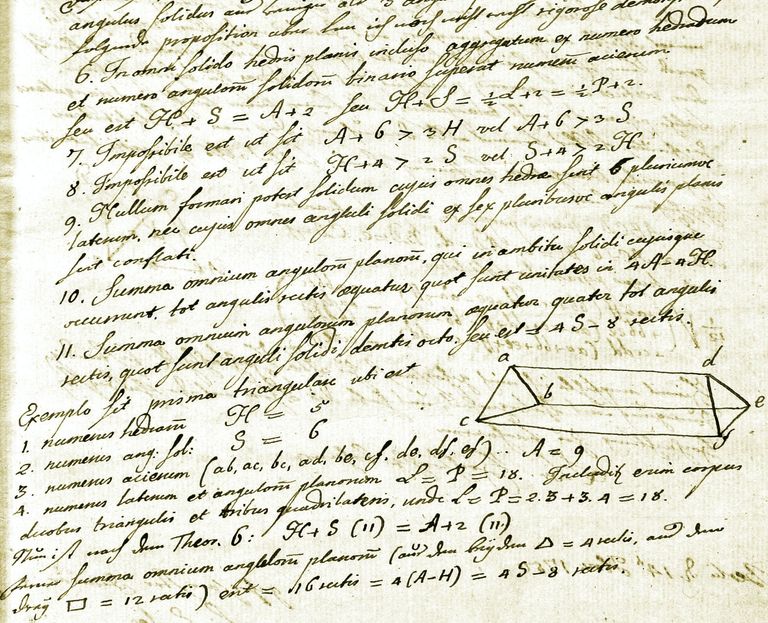 angulus solidus
folgende proposition aber kan ich noch nicht recht rigorose demonstriren
6. In omni solido hedris planis incluso aggregatum ex numero hedrarum
et numero angulorũ solidorũ binario superat numerũ acierum
seu est H + S = A + 2 seu H + S = ½L + 2 = ½P + 2.
7. Impossibile est ut sit A + 6 > 3H vel A + 6 > 3S
8. Impossibile est ut sit H + 4 > 2S vel S + 4 > 2H
9. Nullum formari potest solidum cujus omnes hedrae sint 6 pluriumve
laterum, nec cujus omnes anguli solidi ex sex pluribusve angulis planis
sint conflati.
10. Summa omnium angulorũ planorũ, qui in ambitu solidi cujusque
occurrunt, tot angulis rectis aequatur quot sunt unitates in 4A - 4H.
11. Summa omnium angulorum planorum aequatur quater tot angulis
rectis, quot sunt anguli solidi demtis octo. seu est = 4S - 8 rectis.
Exemplo sit prisma triangulare ubi est
a d b e c f
1. numerus hedrarũ H = 5
2. numerus ang. sol: S = 6
3. numerus acierum (ab, ac, bc, ad, be, cf, de, df, ef) .. A = 9
4. numerus laterum et angulorũ planorum L = P = 18. Includitur enim corpus
duobus triangulis et tribus quadrilateris, unde L = P = 2.3 + 3.4 = 18.
Nun ist nach dem Theor. 6: H + S (11) = A + 2 (11)
summa omnium angulorũ planorũ (auß den beyden Δ = 4 rectis, auß den
drey □ = 12 rectis) erit = 16 rectis = 4(A - H) = 4S - 8 rectis.